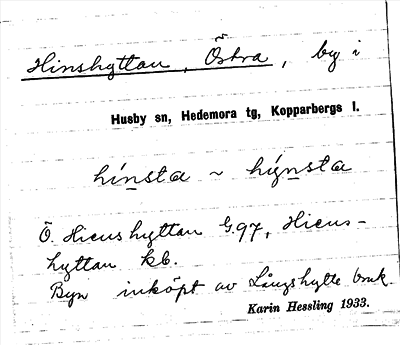 Hinshyttan, Östra, by i
Husby sn, Hedemora tg, Kopparbergs l.
hínsta ~ hýnsta
Ö. Hieus hyttan G.97, Hieus-
hyttan kb.
Byn inköpt av Långshytte bruk.
Karin Hessling 1933.